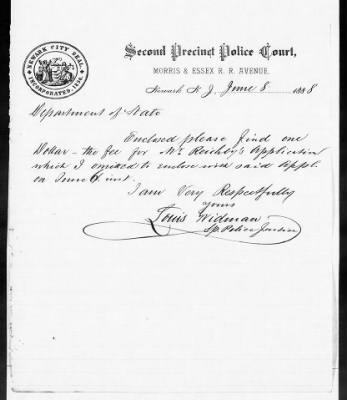 NEWARK CITY SEAL
INCORPORATED, 1836.
Second Precinct Police Court,
MORRIS & ESSEX R. R. AVENUE.
Newark N. J. June 8 1888
Department of State
Enclosed please find one
Dollar - the fee for Application
which I omitted to enclose with said Appli
on June 6 inst.
I am Very Respectfully
yours
Louis Widman
Police Justice